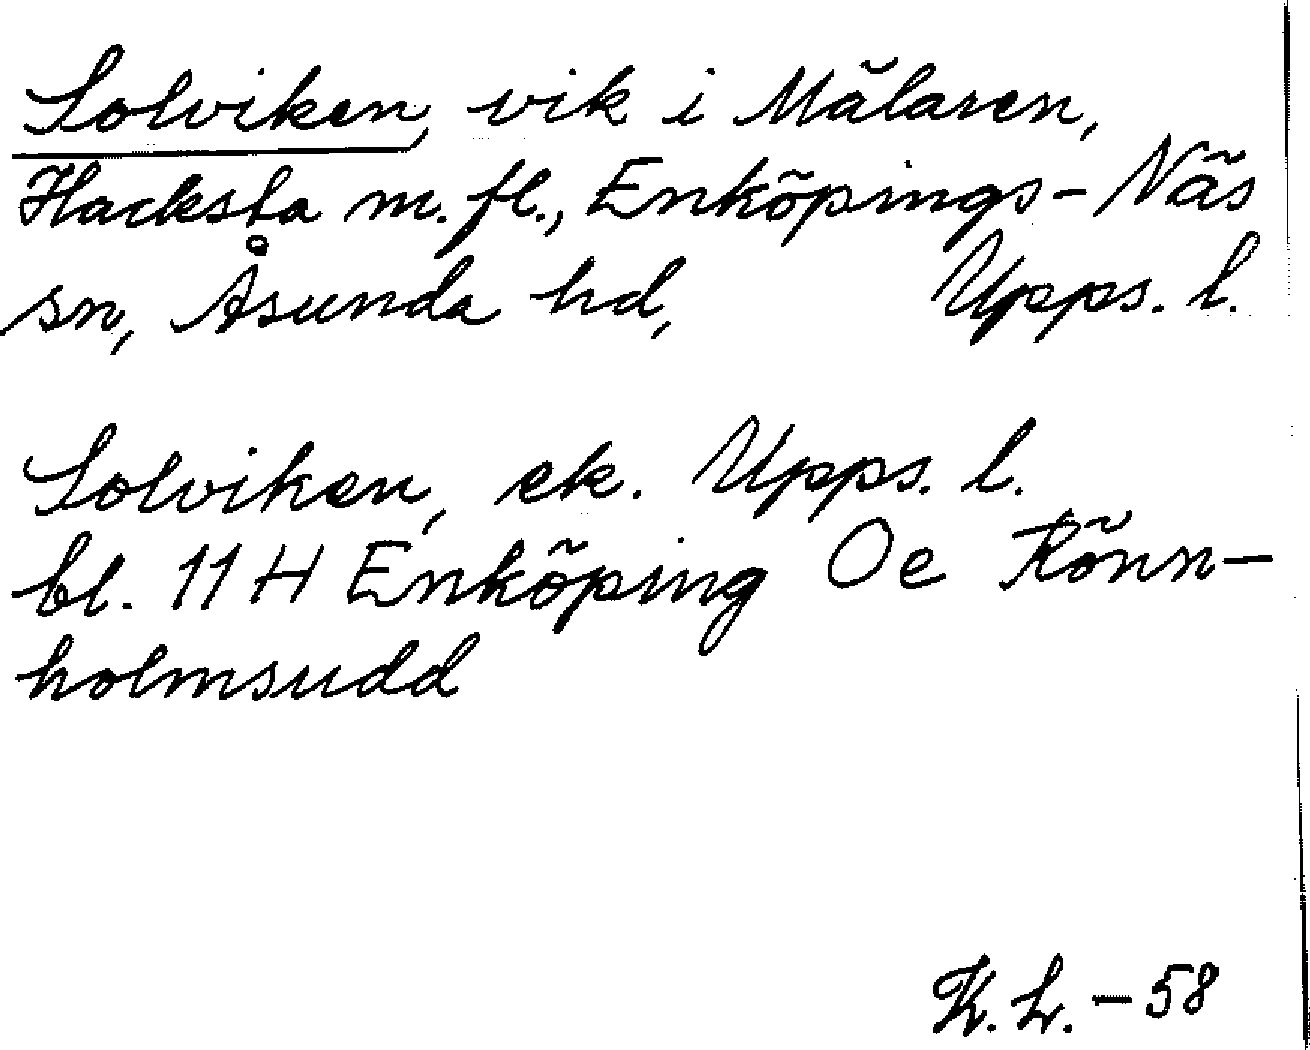 Solviken, vik i Mälaren,
Hacksta m.fl., Enköpings-Näs
sn, Åsunda hd, Upps. l.
Solviken, ek. Upps. l.
bl. 11 H Enköping Oe Rönn-
holmsudd
K.L. - 58